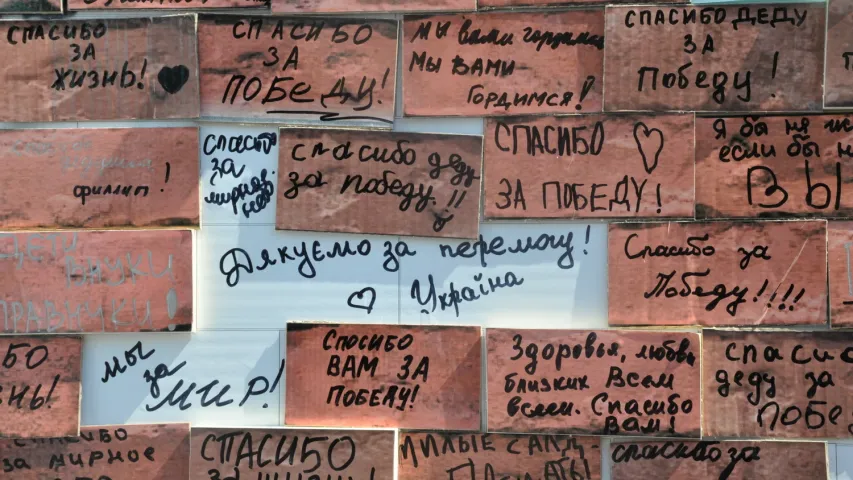 СПАСИБО
ЗА
ЖИЗНЬ!
СПАСИБО
ЗА
ПОБЕДУ!
Мы вами гордимся
Мы ВАМИ
ГОРДИМСЯ!
СПАСИБО ДЕДУ
ЗА
Победу!
филипп !
Спасибо
за
мирное
небо
спасибо деду
за победу.!!
СПАСИБО
ЗА ПОБЕДУ!
Я бы не
если бы н
ВЫ
ДЕТИ
ВНУКИ
ПРАВНУКИ!
Дякуємо за перемогу!
Україна
Спасибо за
Победу!!!!
БО
НЬ!
мы
за
МИР!
СПОСИБО
ВАМ ЗА
ПОБЕДУ!
Здоровья, любви
близких Всем
всем. Спасибо
Вам!
СПАСИБ
деду за
ПОБЕ
за мирное
СПАСИБО
МИЛЫЕ
спасибо за